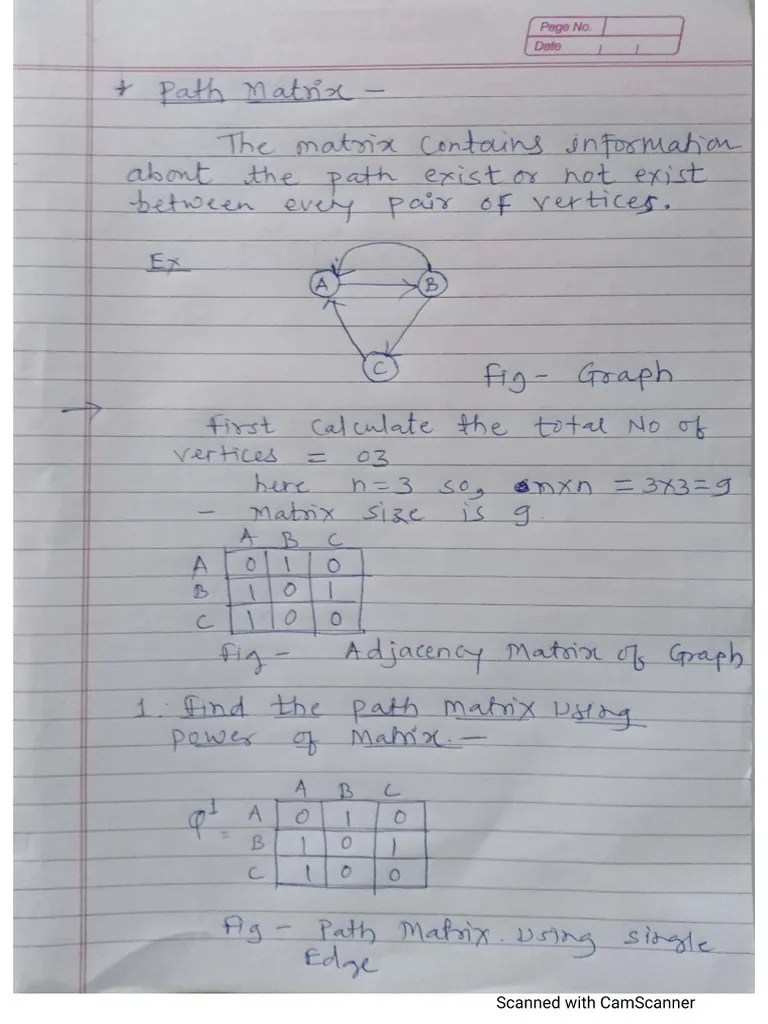 Page No.
Date
* Path Matrix -
The matrix contains information
about the path exist or not exist
between every pair of vertices.
Ex
A B
C
fig - Graph
→
first calculate the total No of
vertices = 03
here n=3 so, n×n = 3×3=9
- Matrix size is 9.
A B C
A 0 1 0
B 1 0 1
C 1 0 0
fig - Adjacency Matrix of Graph
1. find the path matrix using
power of Matrix. -
A B C
A 0 1 0
B 1 0 1
C 1 0 0
fig - Path Matrix using single
Edge
Scanned with CamScanner